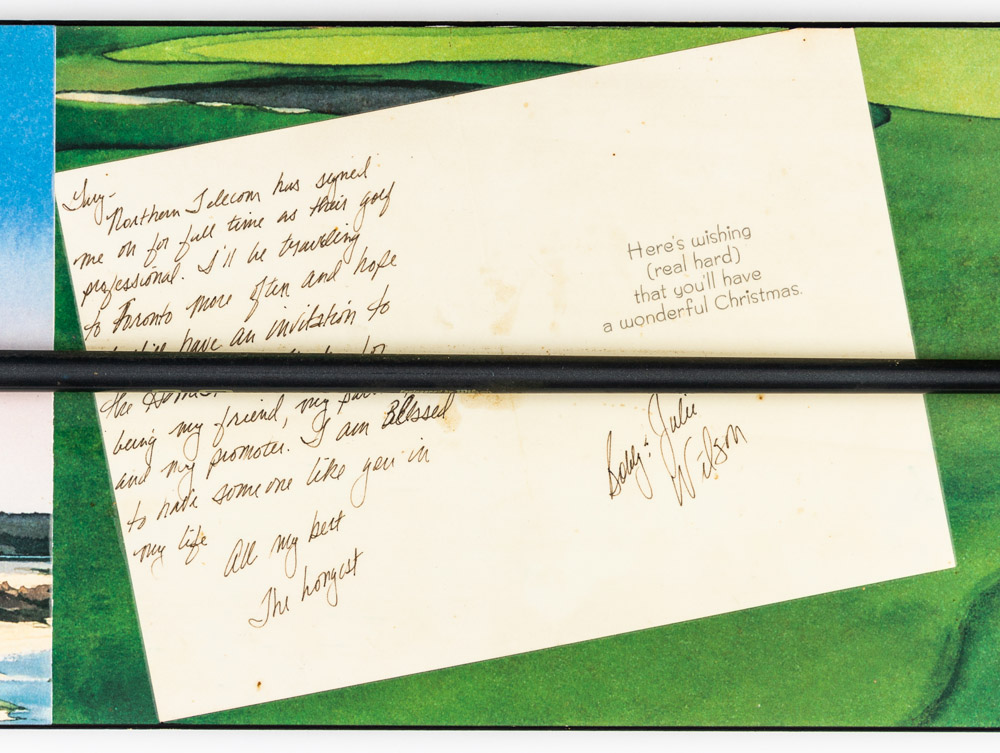 Northern Telecom has signed
me on for full time as their golf
professional. I'll be traveling
to Toronto more often and hope
have an invitation to
the
being my friend, my
and my promoter. I am Blessed
to have someone like you in
my life
All my best
The Longest
Here's wishing
(real hard)
that you'll have
a wonderful Christmas.
Bobby & Julie
Wilson